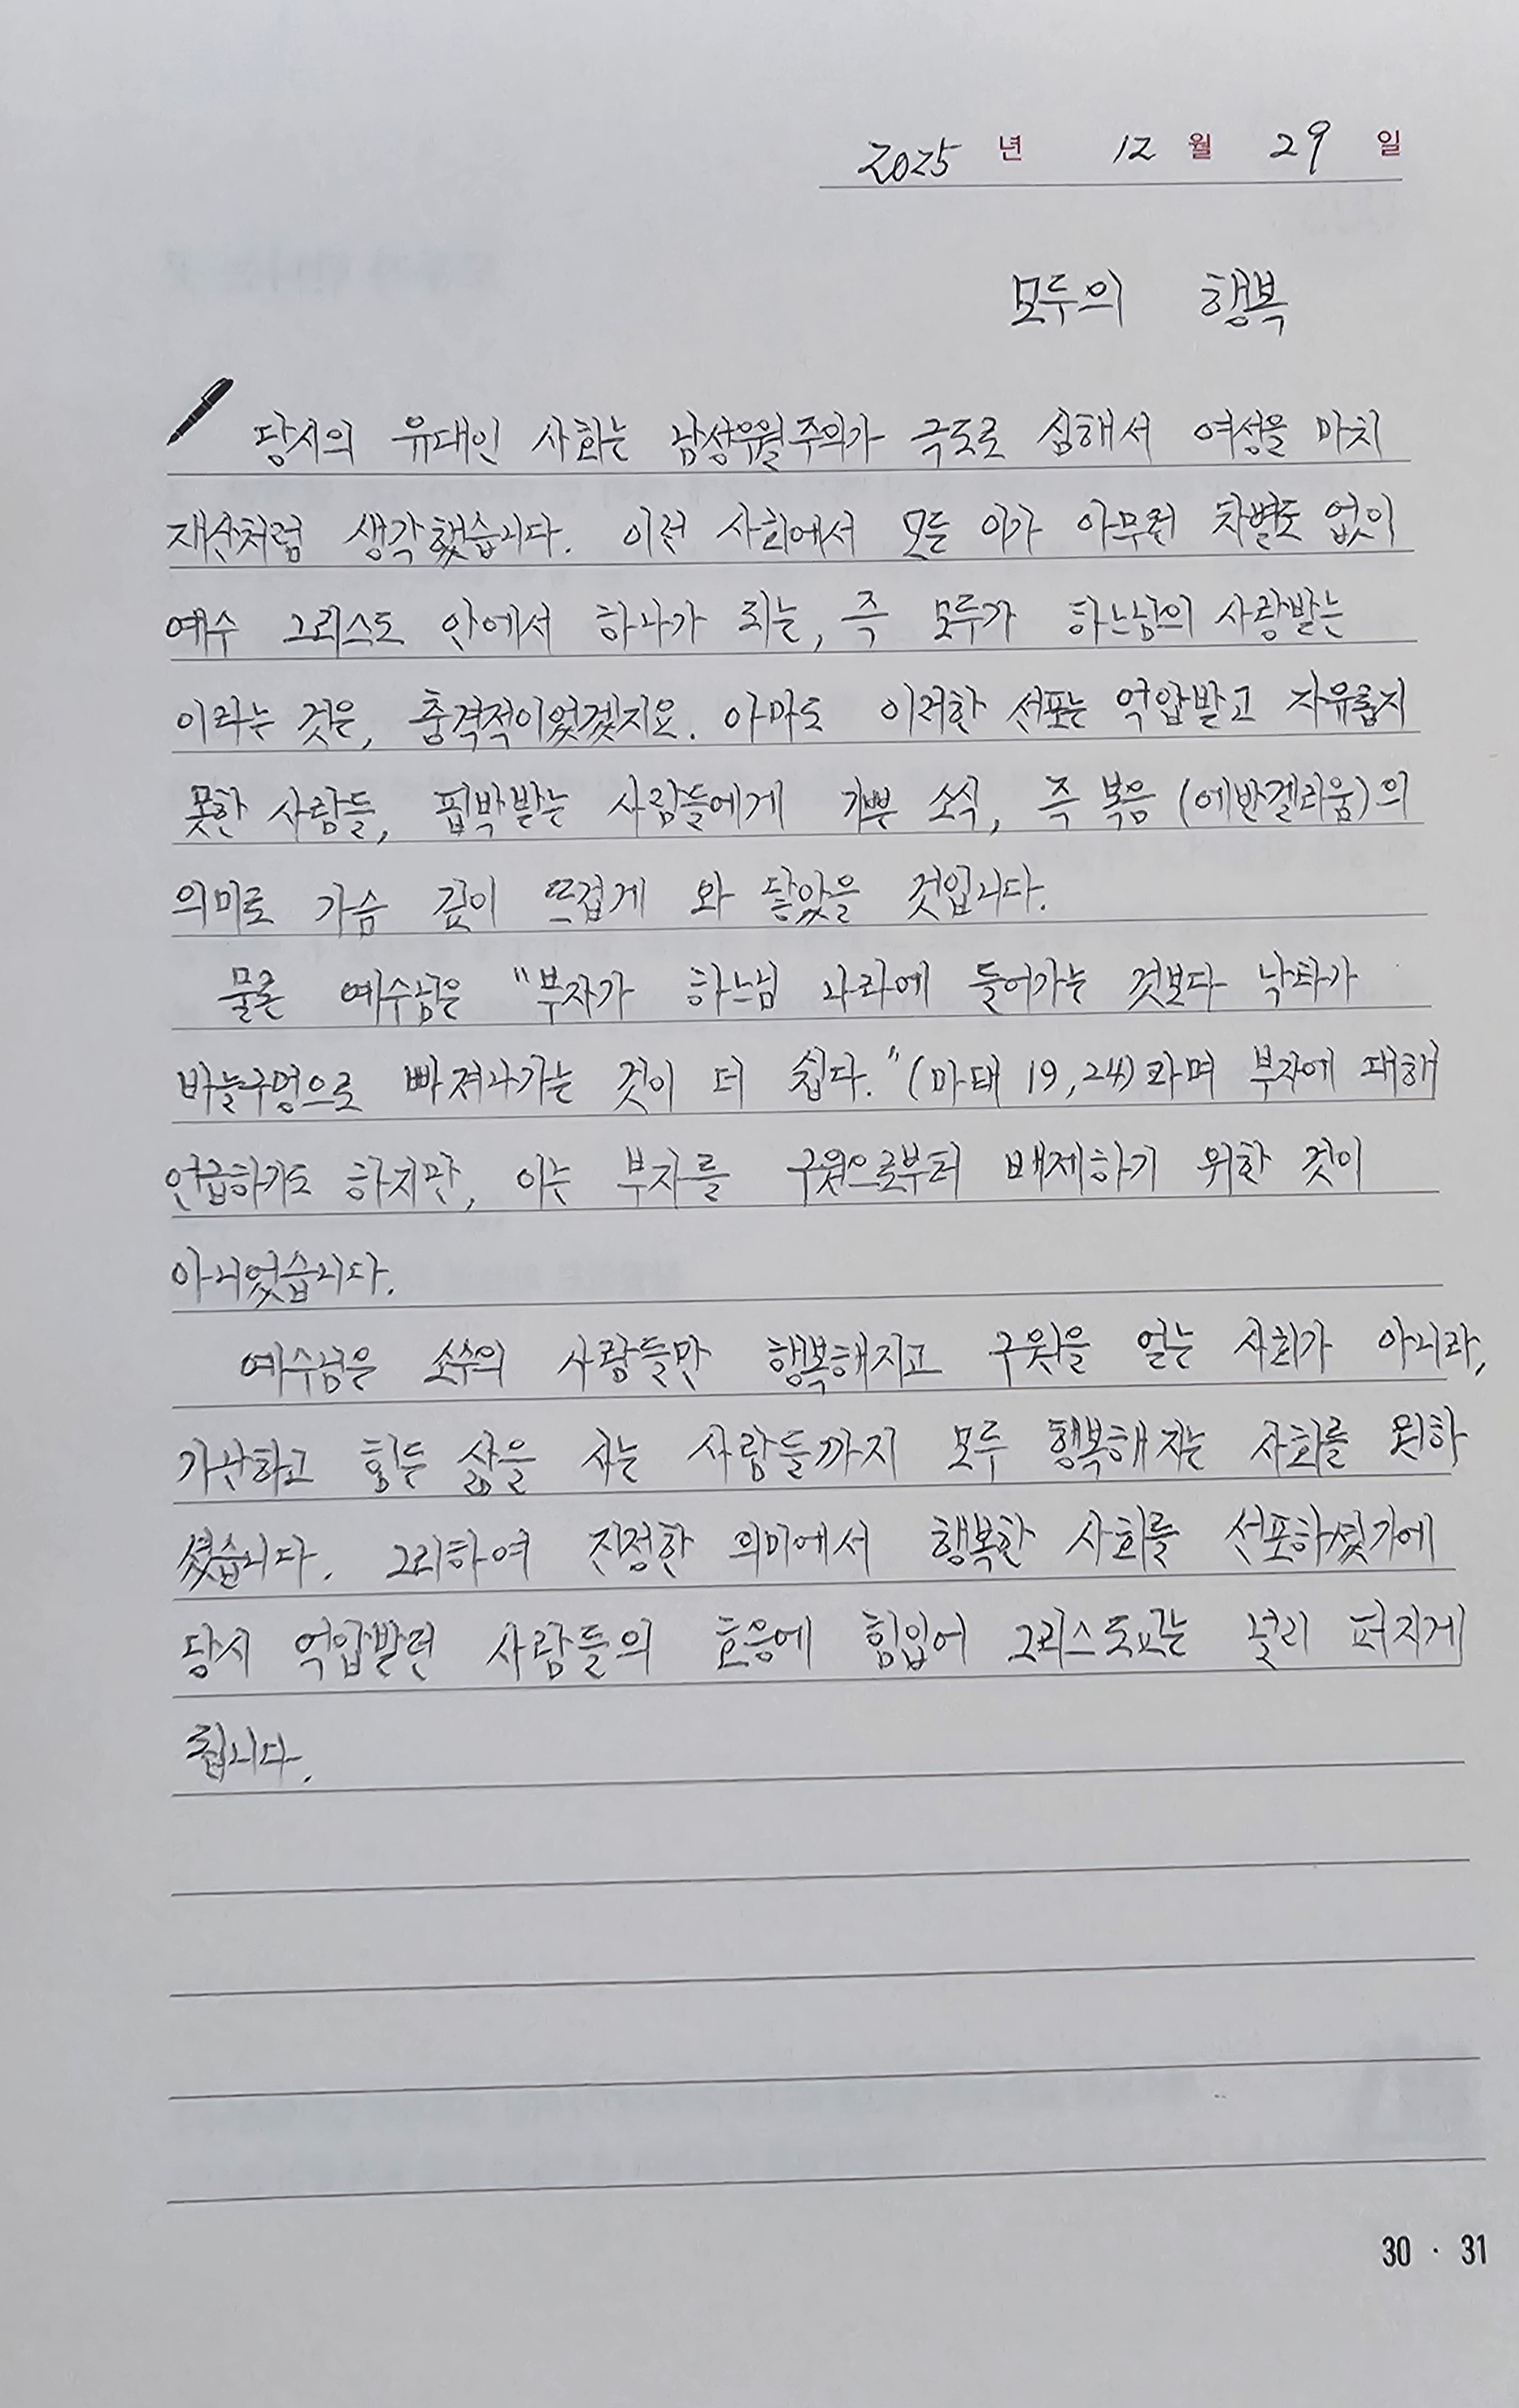 2025 년 12 월 29 일
모두의 행복
당시의 유대인 사회는 남성우월주의가 극도로 심해서 여성을 마치
재산처럼 생각했습니다. 이런 사회에서 모든 이가 아무런 차별도 없이
예수 그리스도 안에서 하나가 되는, 즉 모두가 하느님의 사랑받는
이라는 것은, 충격적이었겠지요. 아마도 이러한 선포는 억압받고 자유롭지
못한 사람들, 핍박받는 사람들에게 기쁜 소식, 즉 복음 (에반겔리움)의
의미로 가슴 깊이 뜨겁게 와 닿았을 것입니다.
물론 예수님은 "부자가 하느님 나라에 들어가는 것보다 낙타가
바늘구멍으로 빠져나가는 것이 더 쉽다."(마태 19,24)라며 부자에 대해
언급하기도 하지만, 이는 부자를 구원으로부터 배제하기 위한 것이
아니었습니다.
예수님은 소수의 사람들만 행복해지고 구원을 얻는 사회가 아니라,
가난하고 힘든 삶을 사는 사람들까지 모두 행복해지는 사회를 원하
셨습니다. 그리하여 진정한 의미에서 행복한 사회를 선포하셨기에
당시 억압받던 사람들의 호응에 힘입어 그리스도교는 널리 퍼지게
됩니다.
30 · 31